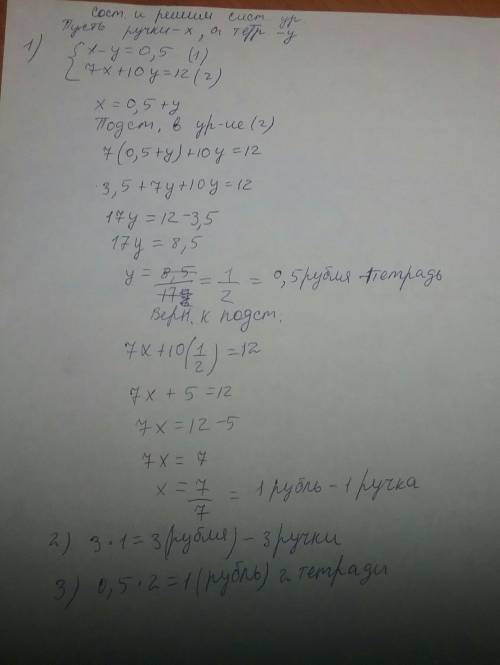 Сост. и решим сист. ур
Пусть ручки - х, а тетр - у
1) { х - у = 0,5 (1)
7х + 10у = 12 (2)
х = 0,5 + у
Подст. в ур-ие (2)
7(0,5 + у) + 10у = 12
3,5 + 7у + 10у = 12
17у = 12 - 3,5
17у = 8,5
у = 8,5/17 = 1/2 = 0,5 рубля - 1 тетрадь
Верн. к подст.
7х + 10(1/2) = 12
7х + 5 = 12
7х = 12 - 5
7х = 7
х = 7/7 = 1 рубль - 1 ручка
2) 3 · 1 = 3 (рубля) - 3 ручки
3) 0,5 · 2 = 1 (рубль) 2 тетради